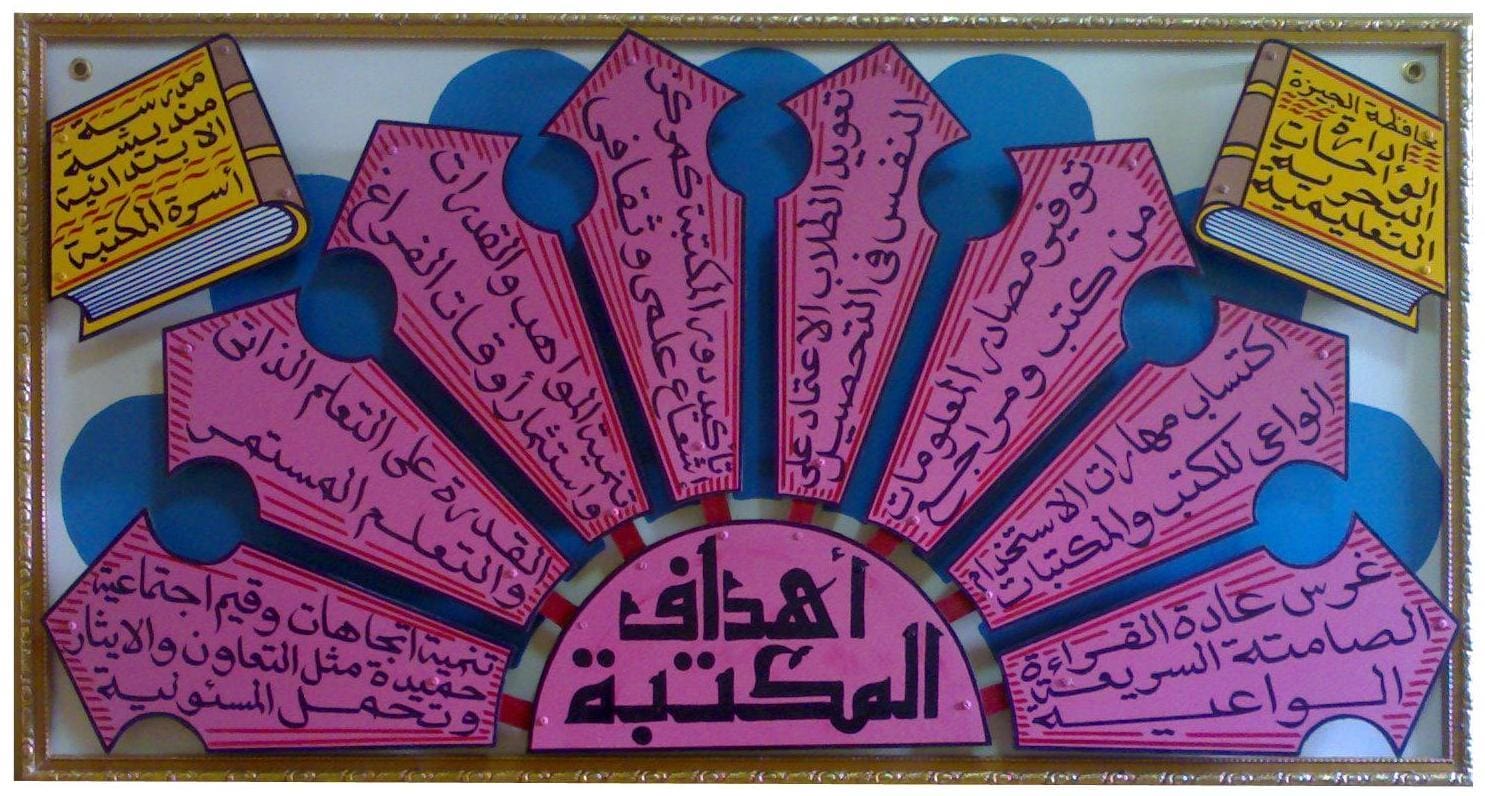 محافظة الجيزة
إدارة
الواحات
البحرية
التعليمية
مدرسة
منديشة
الابتدائية
أسرة المكتبة
أهداف
المكتبة
غرس عادة القراءة
الصامتة السريعة
الواعية
اكتساب مهارات الاستخدام
الواعى للكتب والمكتبات
توفير مصادر المعلومات
من كتب ومراجع
تعويد الطلاب الاعتماد على
النفس فى التحصيل
تأكيد دور المكتبة كمركز
إشعاع علمى وثقافى
تنمية المواهب والقدرات
واستثمار أوقات الفراغ
القدرة على التعلم الذاتى
والتعلم المستمر
تنمية اتجاهات وقيم اجتماعية
حميدة مثل التعاون والايثار
وتحمل المسئولية